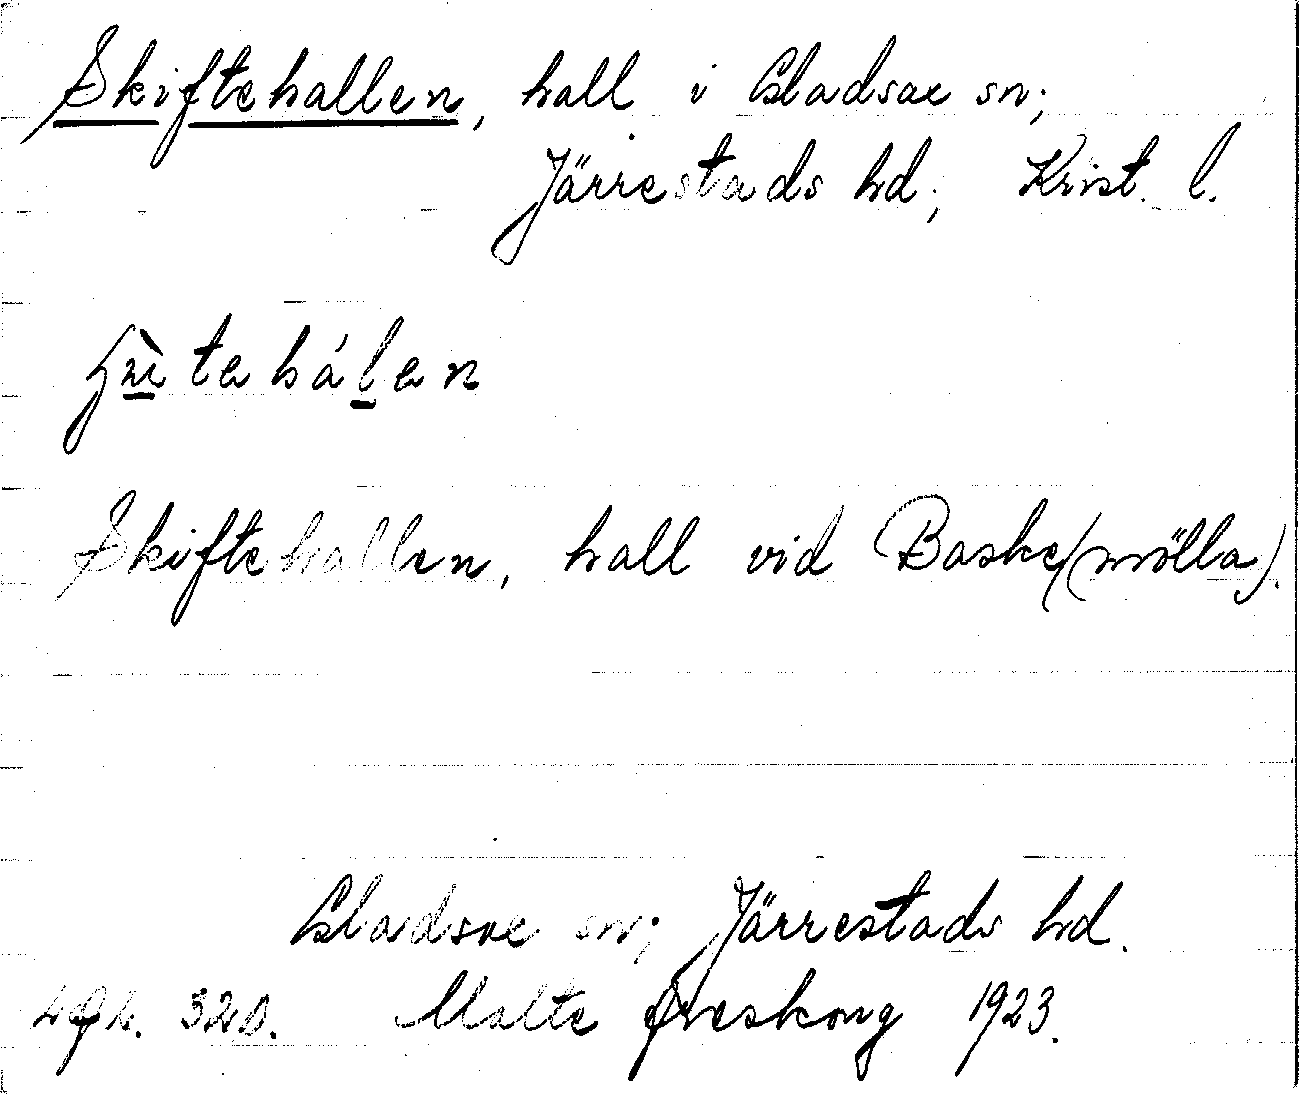 Skiftehallen, hall i Gladsax sn;
Järrestads hd; Krist. l.
Skiftehallen, hall vid Baske(mölla).
Gladsax sn; Järrestads hd.
Malte Øreskong 1923.